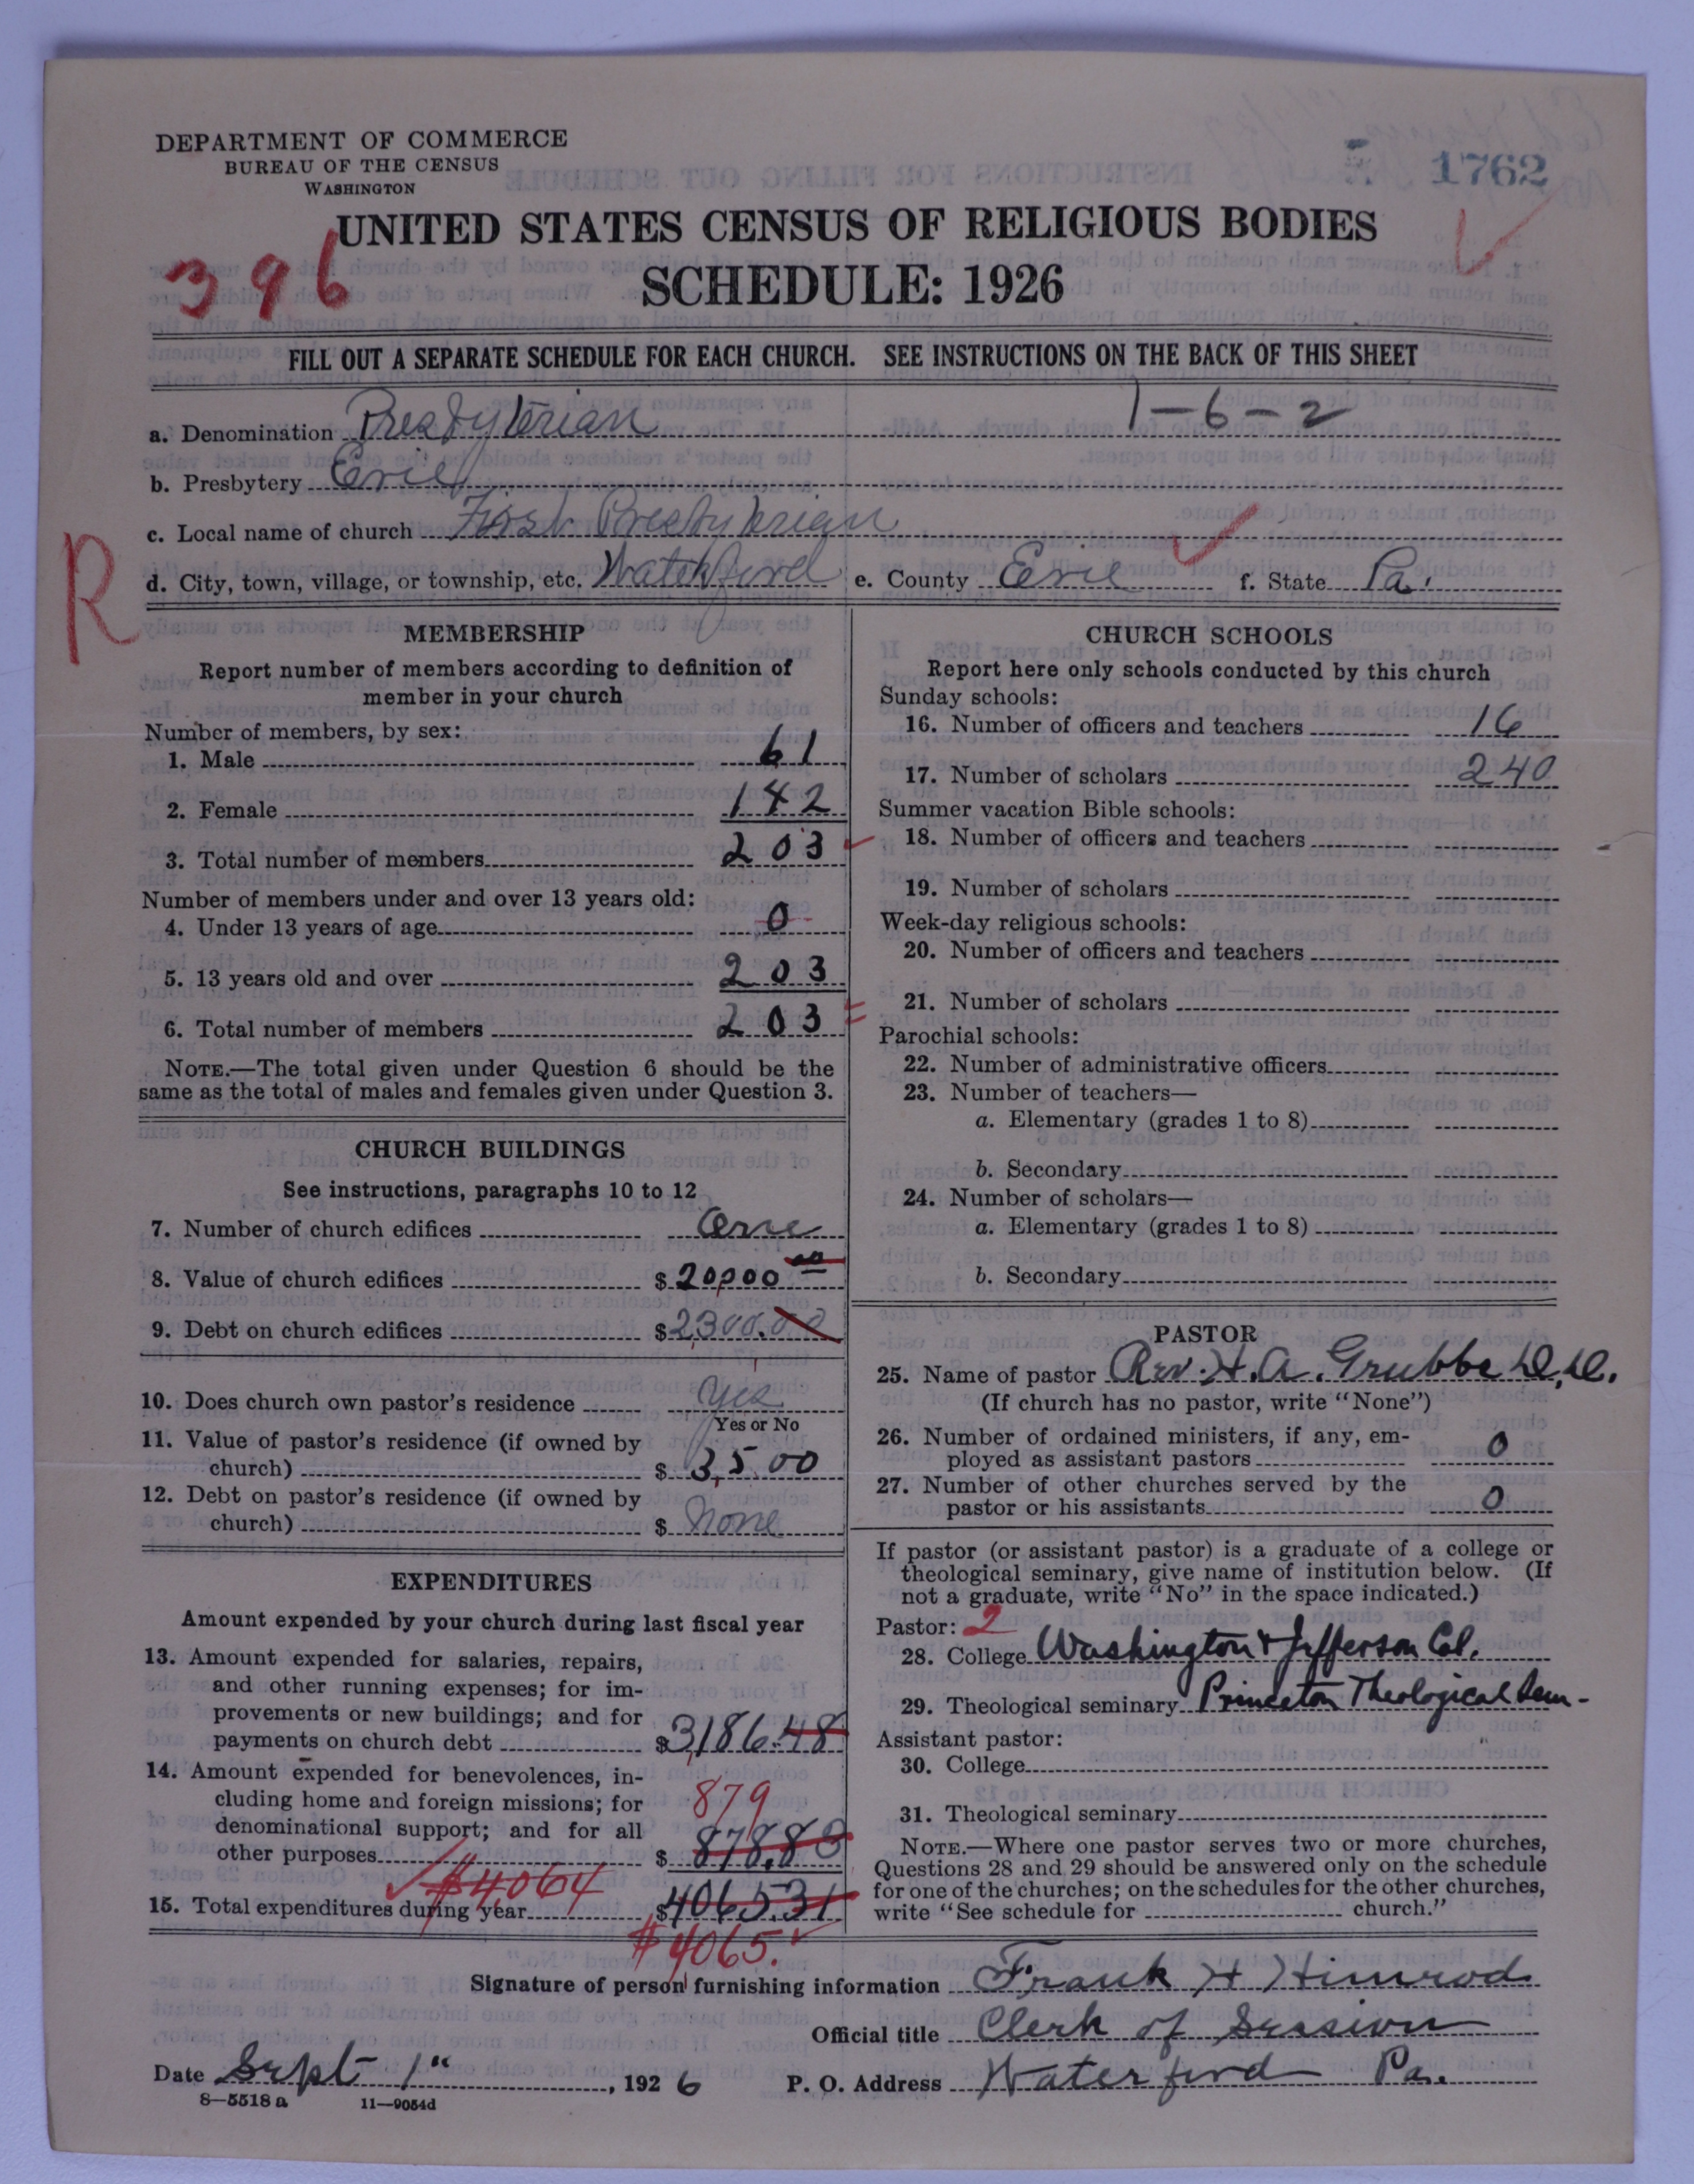 DEPARTMENT OF COMMERCE
BUREAU OF THE CENSUS
WASHINGTON
1762
UNITED STATES CENSUS OF RELIGIOUS BODIES
396
SCHEDULE: 1926
FILL OUT A SEPARATE SCHEDULE FOR EACH CHURCH. SEE INSTRUCTIONS ON THE BACK OF THIS SHEET
1-6-2
a. Denomination Presbyterian
b. Presbytery Erie
c. Local name of church First Presbyterian
R
d. City, town, village, or township, etc. Waterford e. County Erie f. State Pa.
MEMBERSHIP
Report number of members according to definition of
member in your church
Number of members, by sex:
1. Male 61
2. Female 142
3. Total number of members 203
Number of members under and over 13 years old:
4. Under 13 years of age 0
5. 13 years old and over 203
6. Total number of members 203
NOTE.—The total given under Question 6 should be the
same as the total of males and females given under Question 3.
CHURCH BUILDINGS
See instructions, paragraphs 10 to 12
7. Number of church edifices One
8. Value of church edifices $ 20,000 00
9. Debt on church edifices $ 2300.00
10. Does church own pastor's residence yes
Yes or No
11. Value of pastor's residence (if owned by
church) $ 3,500
12. Debt on pastor's residence (if owned by
church) $ None
EXPENDITURES
Amount expended by your church during last fiscal year
13. Amount expended for salaries, repairs,
and other running expenses; for im-
provements or new buildings; and for
payments on church debt $ 3,186.48
14. Amount expended for benevolences, in-
cluding home and foreign missions; for 879
denominational support; and for all
other purposes $ 878.83
$4064
15. Total expenditures during year $ 4065.31
$4065.
CHURCH SCHOOLS
Report here only schools conducted by this church
Sunday schools:
16. Number of officers and teachers 16
17. Number of scholars 240
Summer vacation Bible schools:
18. Number of officers and teachers
19. Number of scholars
Week-day religious schools:
20. Number of officers and teachers
21. Number of scholars
Parochial schools:
22. Number of administrative officers
23. Number of teachers—
a. Elementary (grades 1 to 8)
b. Secondary
24. Number of scholars—
a. Elementary (grades 1 to 8)
b. Secondary
PASTOR
25. Name of pastor Rev. H. A. Grubbs D.D.
(If church has no pastor, write "None")
26. Number of ordained ministers, if any, em-
ployed as assistant pastors 0
27. Number of other churches served by the
pastor or his assistants 0
If pastor (or assistant pastor) is a graduate of a college or
theological seminary, give name of institution below. (If
not a graduate, write "No" in the space indicated.)
Pastor: 2
28. College Washington & Jefferson Col.
29. Theological seminary Princeton Theological Sem-
Assistant pastor:
30. College
31. Theological seminary
NOTE.—Where one pastor serves two or more churches,
Questions 28 and 29 should be answered only on the schedule
for one of the churches; on the schedules for the other churches,
write "See schedule for church."
Signature of person furnishing information Frank H Himrod
Official title Clerk of Session
Date Sept 1", 1926 P. O. Address Waterford Pa.
8—5518 a 11—9054d